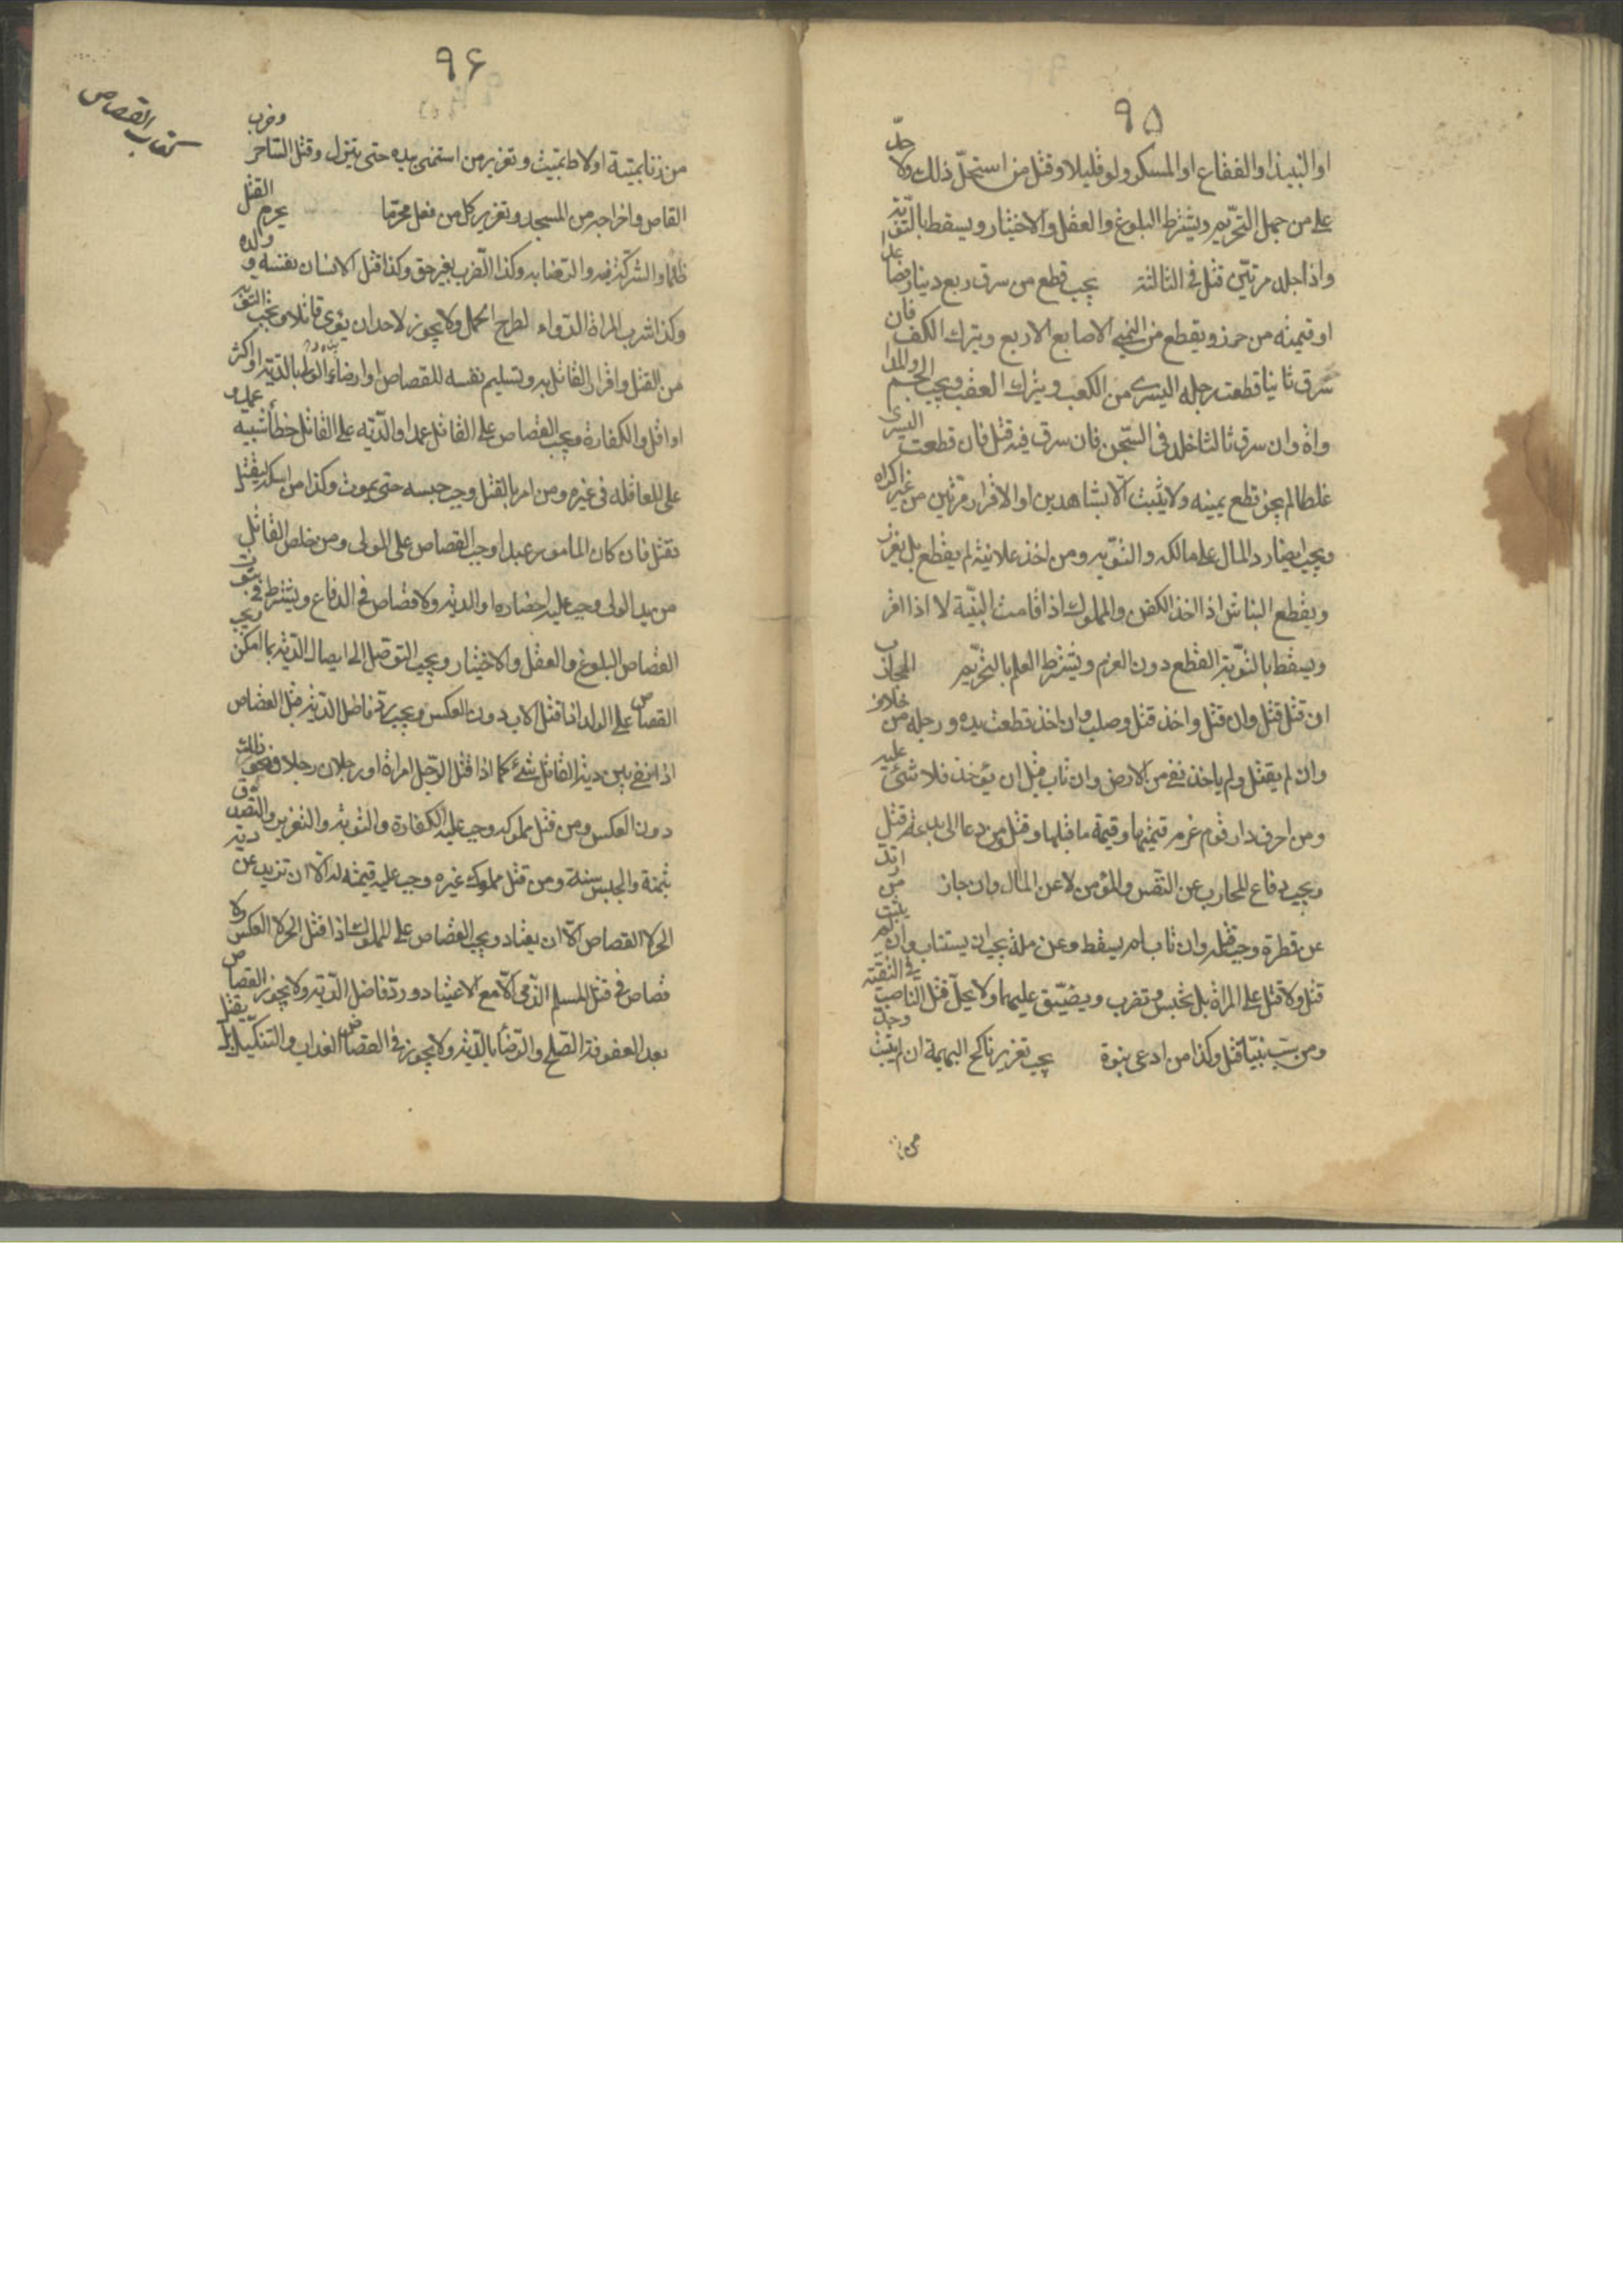 ٩٥
او النبيذ او الفقاع او المسكر ولو قليلا وقتل من استحل ذلك ولا حدّ
على من جهل التحريم ويشترط البلوغ والعقل والاختيار ويسقط بالتوبة
واذا جلد مرتين قتل فى الثالثة يجب قطع من سرق ربع دينار فصاعدا
او قيمته من حرز ويقطع من اليمين الاصابع الاربع ويترك الكف فان
سرق ثانيا قطعت رجله اليسرى من الكعب ويترك العقب ويجب
واة وان سرق ثالثا خلد فى السجن فان سرق فيه قتل فان قطعت اليسرى
غلطا لم يجز قطع يمينه ولا يثبت الا بشاهدين او الاقرار مرتين من غير اكراه
ويجب ايضا رد المال على مالكه والتوبة ومن اخذ علانية لم يقطع بل يعزر
ويقطع النباش اذا اخذ الكفن والمملوك اذا قامت البينة لا اذا اقر
ويسقط بالتوبة القطع دون الغرم ويشترط العلم بالتحريم المحارب
ان قتل قتل وان قتل واخذ قتل وصلب وان اخذ قطعت يده ورجله من خلاف
وان لم يقتل ولم ياخذ نفى من الارض وان تاب قبل ان يؤخذ فلا شئ عليه
ومن احرق دار قوم غرم قيمتها وقيمة ما فيها وقتل ومن دعا الى بدعة قتل
ويجب دفاع المحارب عن النفس والمؤمن لا عن المال وان جاز من ارتد
عن فطرة وجب قتله وان تاب لم يسقط وعن ملة يجب ان يستتاب وان لم يتب
قتل ولا قتل على المراة بل تحبس وتضرب ويضيق عليها ولا يحل قتل الناصب فى التقية
ومن سب نبيا قتل وكذا من ادعى نبوة يجب تعزير ناكح البهيمة ان لم يتب وحد
من
٩٦
كتاب القصاص
من زنا بميتة او لاط بميت وتعزير من استمنى بيده حتى ينزل وقتل الساحر وضرب
القاص واخراجه من المسجد وتعزير كل من فعل محرما يحرم القتل
ظلما والشركة فيه والرضا به وكذا الضرب بغير حق وكذا قتل الانسان نفسه وولده
وكذا شرب المراة الدواء لطرح الحمل ولا يجوز لاحد ان يؤوى قاتلا وتجب التوبة
من القتل واقرار القاتل به وتسليم نفسه للقصاص او ارضاء الولى بالدية او اكثر
او اقل والكفارة ويجب القصاص على القاتل عمدا والدية على القاتل خطأ شبيه عمد و
على العاقلة فى غيره ومن امر بالقتل وجب حبسه حتى يموت وكذا من امسكه ليقتل
فقتل فان كان المامور عبدا وجب القصاص على المولى ومن خلص القاتل
من يد الولى وجب عليه احضاره او الدية ولا قصاص فى الدفاع ويشترط فى ثبوت
القصاص البلوغ والعقل والاختيار ويجب التوصل الى ايصال الدية بما امكن ويجب
القصاص على الولد اذا قتل الاب دون العكس ويجب رد فاضل الدية قبل القصاص
اذا بقى بين دية القاتل شئ كما اذا قتل الرجل امراة او رجلان رجلا ونحو ذلك
دون العكس ومن قتل مملوكه وجب عليه الكفارة والتوبة والتعزير والتصدق
بثمنه والحبس سنة ومن قتل مملوك غيره وجب عليه قيمته له الا ان تزيد عن دية
الحر لا القصاص الا ان يعتاد ويجب القصاص على المملوك اذا قتل الحر لا العكس ولا
قصاص فى قتل المسلم الذمى الا مع الاعتياد ورد فاضل الدية ولا يجوز القصاص
بعد العفو فى الصلح والرضا بالدية ولا يجوز فى القصاص العذاب والتنكيل بل يقتل